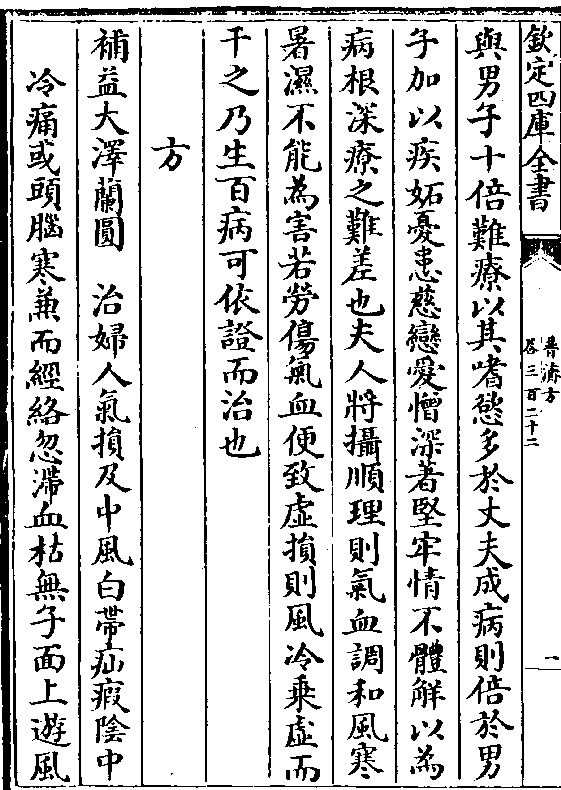 欽定四庫全書
普濟方
卷三百二十二
一
與男子十倍難療以其嗜慾多於丈夫成病則倍於男
子加以疾妬憂恚慈戀愛憎深著堅牢情不體解以為
病根深療之難差也夫人將攝順理則氣血調和風寒
暑濕不能為害若勞傷氣血便致虛損則風冷乘虛而
干之乃生百病可依證而治也
方
補益大澤蘭圓　治婦人氣損及中風白帶疝瘕陰中
冷痛或頭腦寒兼而經絡忽滯血枯無子面上遊風